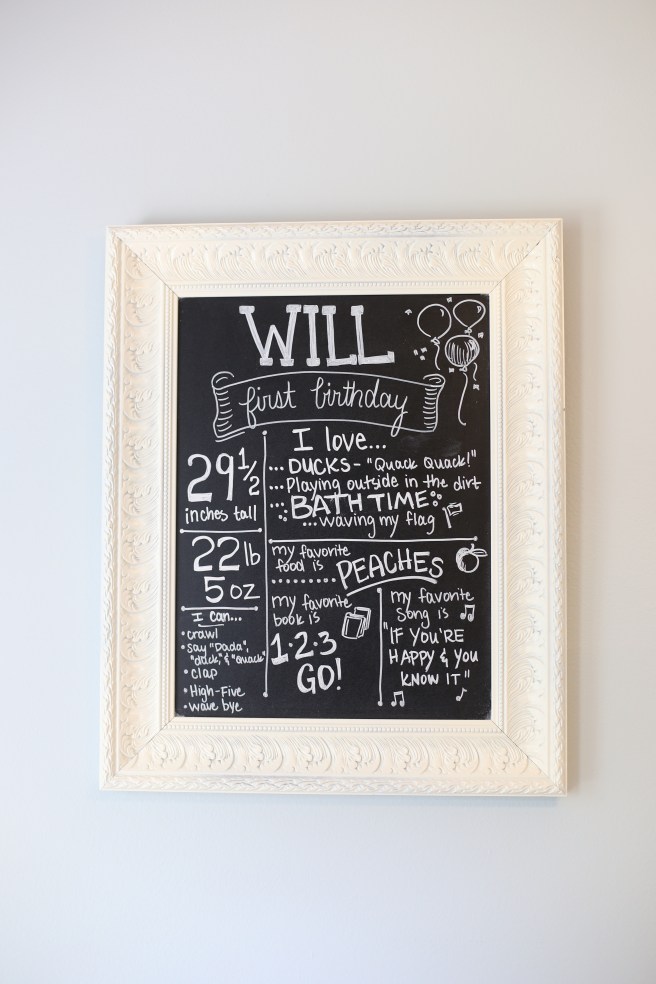 WILL
first birthday
29 1/2
inches tall
22 lb
5 oz
I can...
• crawl
• say "Dada",
"duck," & "quack"
• clap
• High-Five
• wave bye
I love...
...DUCKS - "Quack Quack!"
...Playing outside in the dirt
...BATH TIME
...waving my flag
my favorite
food is
........PEACHES
my favorite
book is
1·2·3
GO!
my favorite
song is
"IF YOU'RE
HAPPY & YOU
KNOW IT"